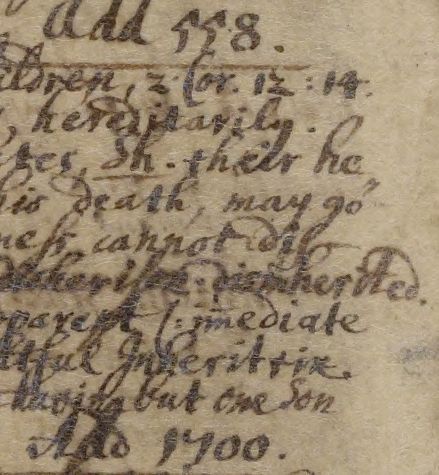 Add 558.
ildren, 2 Cor. 12:14.
hereditarily.
Sh. their he
his death, may go
ness cannot
disinherited.
parent (:mediate
tful Inheritrix.
having but one Son
Add 1700.